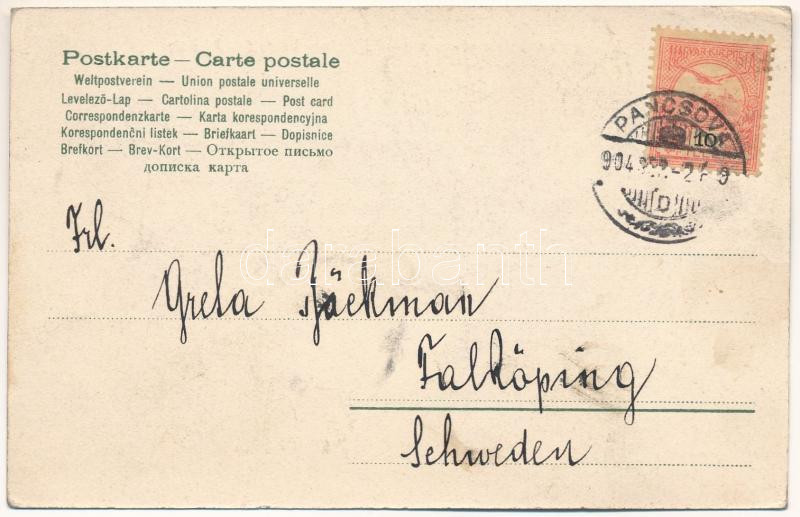 Postkarte — Carte postale
Weltpostverein — Union postale universelle
Levelező-Lap — Cartolina postale — Post card
Correspondenzkarte — Karta korespondencyjna
Korespondenční listek — Briefkaart — Dopisnice
Brefkort — Brev-Kort — Открытое письмо
дописка карта
MAGYAR KIR. POSTA
10
PANCSOVA
904
D
Frl.
Greta Bäckman
Falköping
Schweden
darabanth